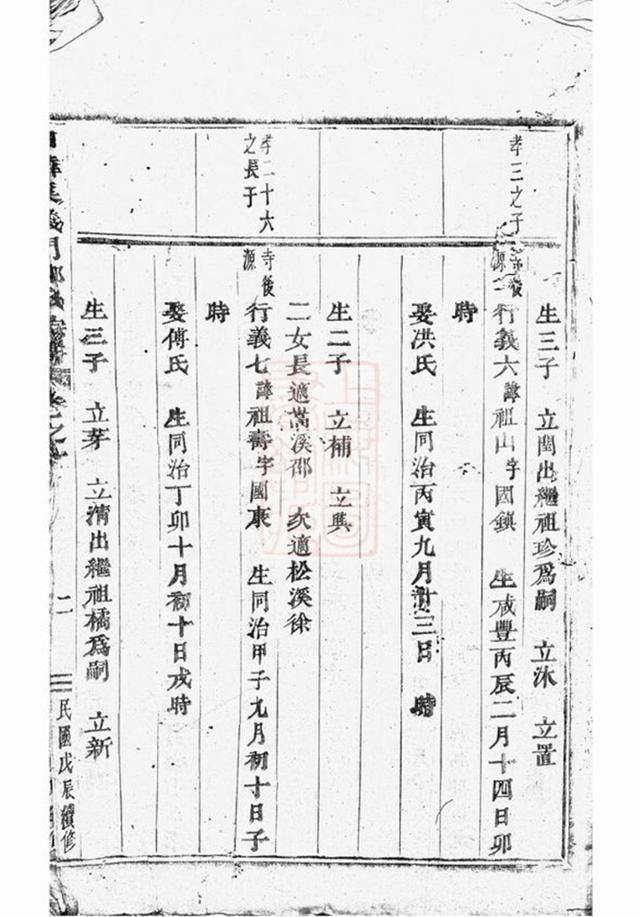 生三子 立閏出繼祖珍爲嗣 立沐 立置
孝三之子
寺後源
行義六諱祖山字國鎮 生咸豐丙辰二月十四日卯
時
娶洪氏 生同治丙寅九月廿三日 時
生二子 立補 立興
二女長適萬溪邵 次適松溪徐
孝二十六之長子
寺後源
行義七諱祖壽字國康 生同治甲子九月初十日子
時
娶傅氏 生同治丁卯十月初十日戌時
生三子 立芽 立清出繼祖橘爲嗣 立新
義門
二
民國戊辰續修